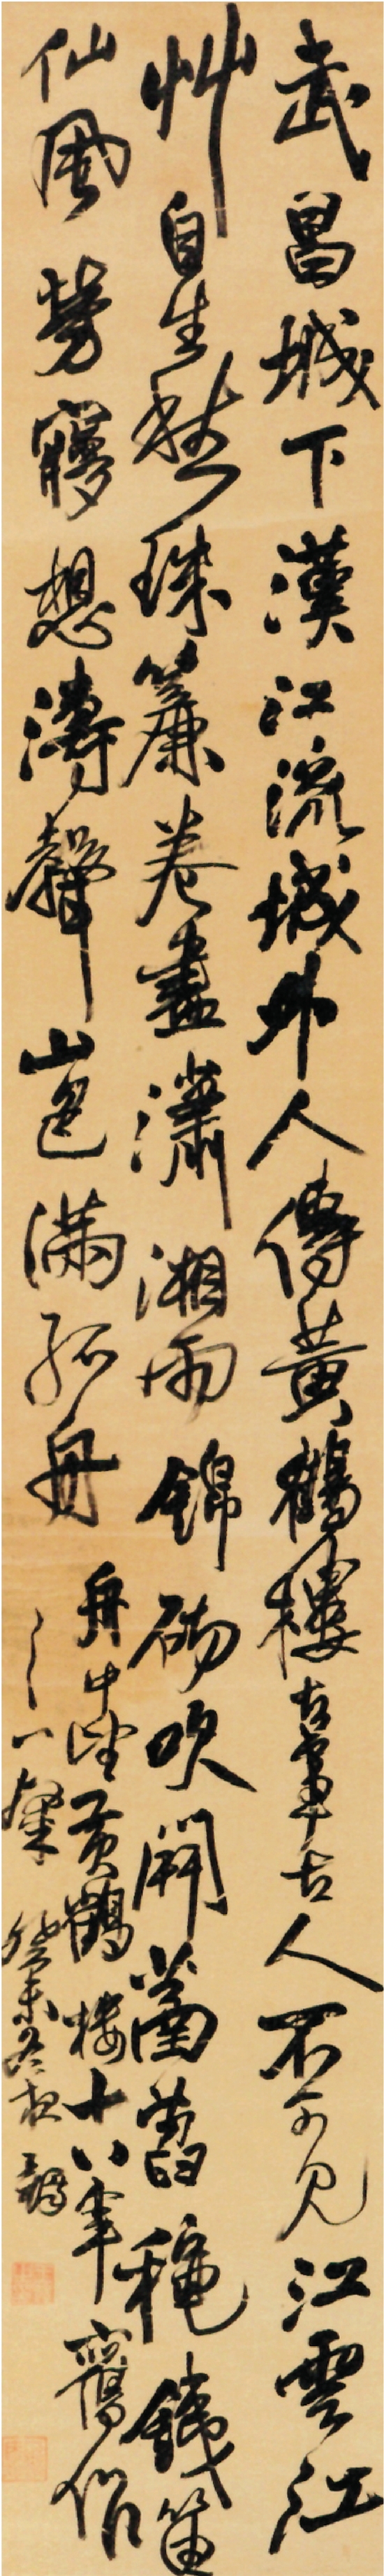 武昌城下漢江流城外人傳黃鶴樓古事古人不可見江雲江
艸自生愁珠簾卷盡瀟湘雨錦吹開菡萏穐鐵笛
仙風勞㝱想濤聲山邑滿孤舟
舟中望黃鶴樓十八年舊作
之一 癸未冬夜